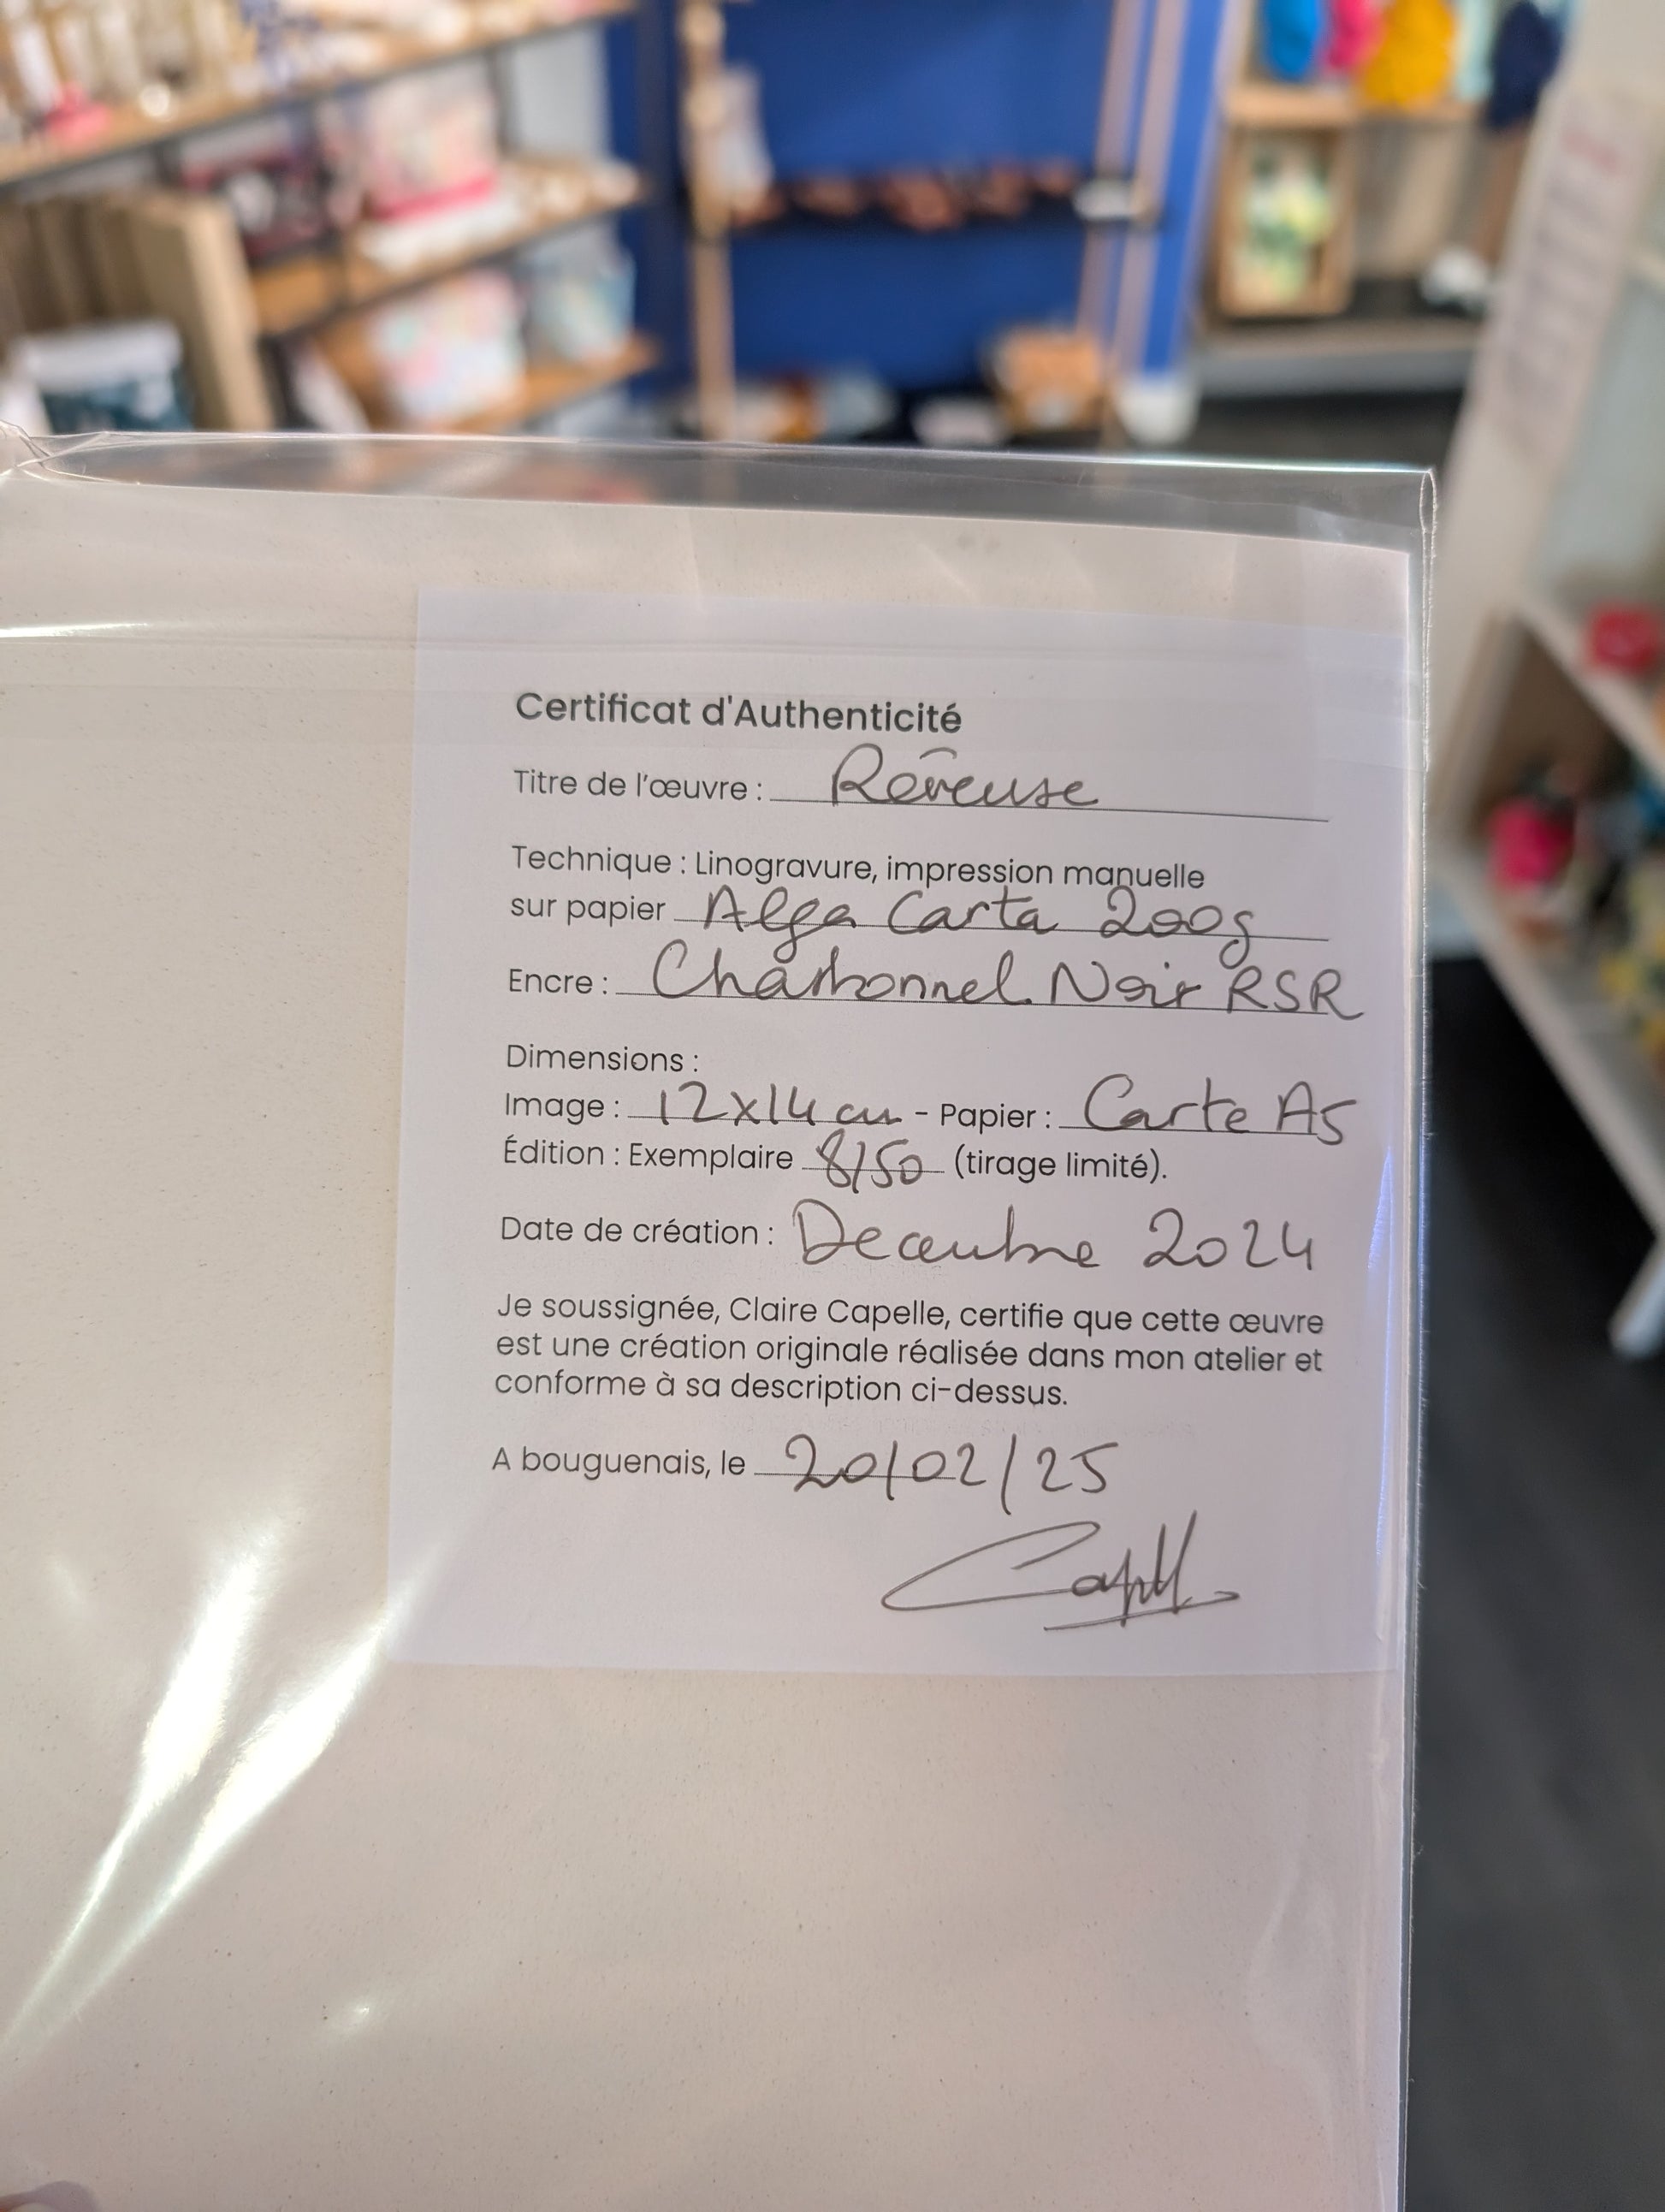 Certificat d'Authenticité
Titre de l'œuvre : Rêveuse
Technique : Linogravure, impression manuelle
sur papier Alga Carta 200g
Encre : Charbonnel Noir RSR
Dimensions :
Image : 12x14 cm - Papier : Carte A5
Édition : Exemplaire 8/50 (tirage limité).
Date de création : Decembre 2024
Je soussignée, Claire Capelle, certifie que cette œuvre
est une création originale réalisée dans mon atelier et
conforme à sa description ci-dessus.
A bouguenais, le 20/02/25